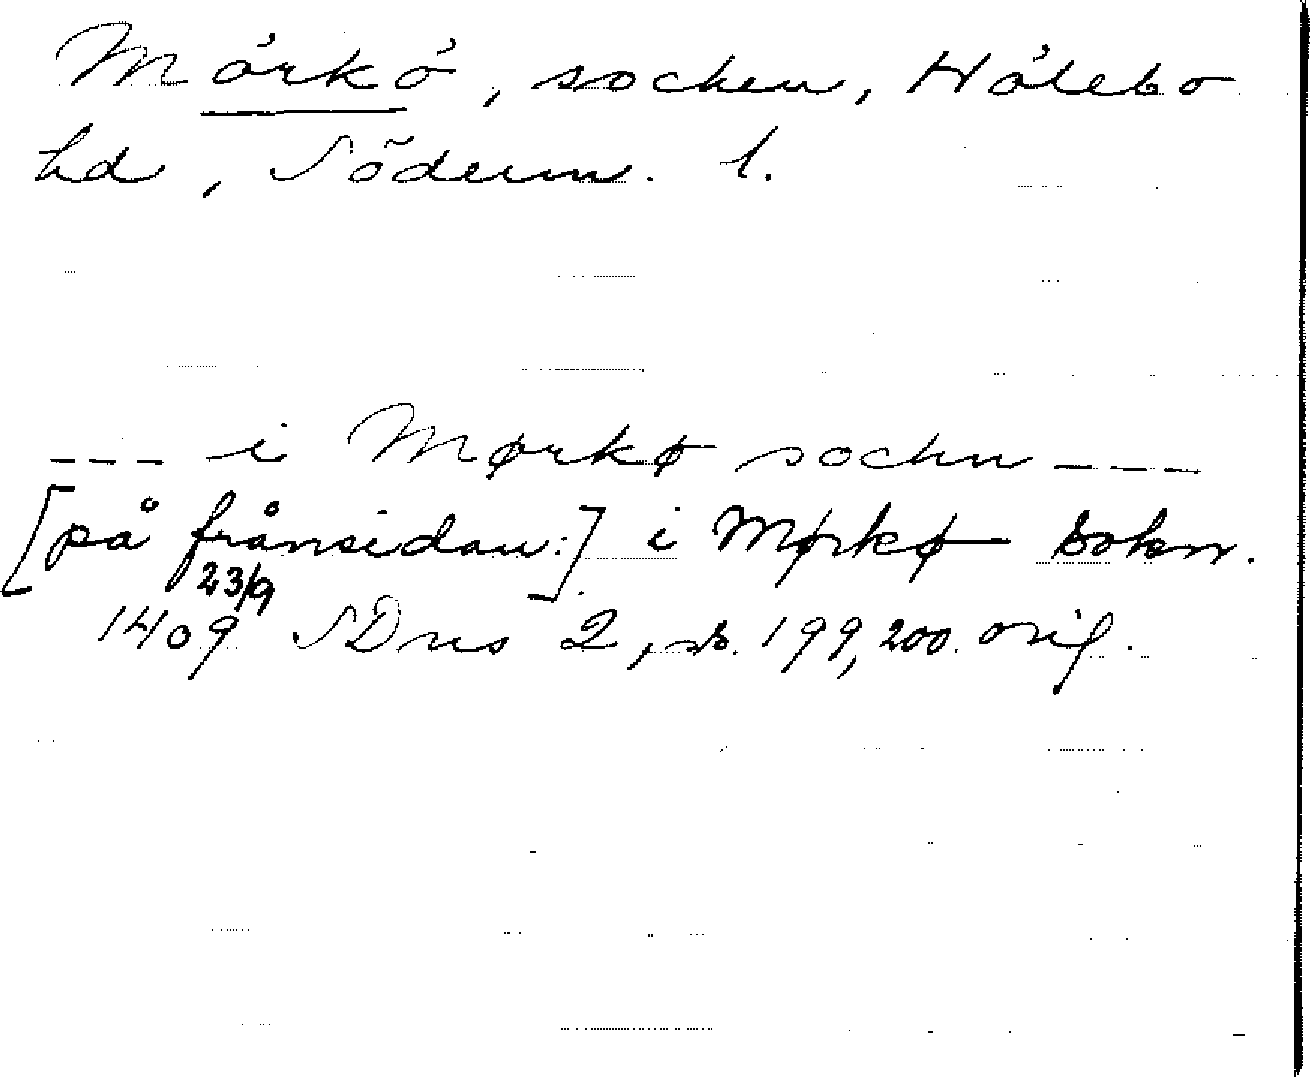 Mörkö, socken, Hölebo
hd, Söderm. l.
--- i Mørkø sochn ---
[på frånsidan:] i Mørkø sokn.
1409 23/9 SDns 2, s. 199, 200. orig.